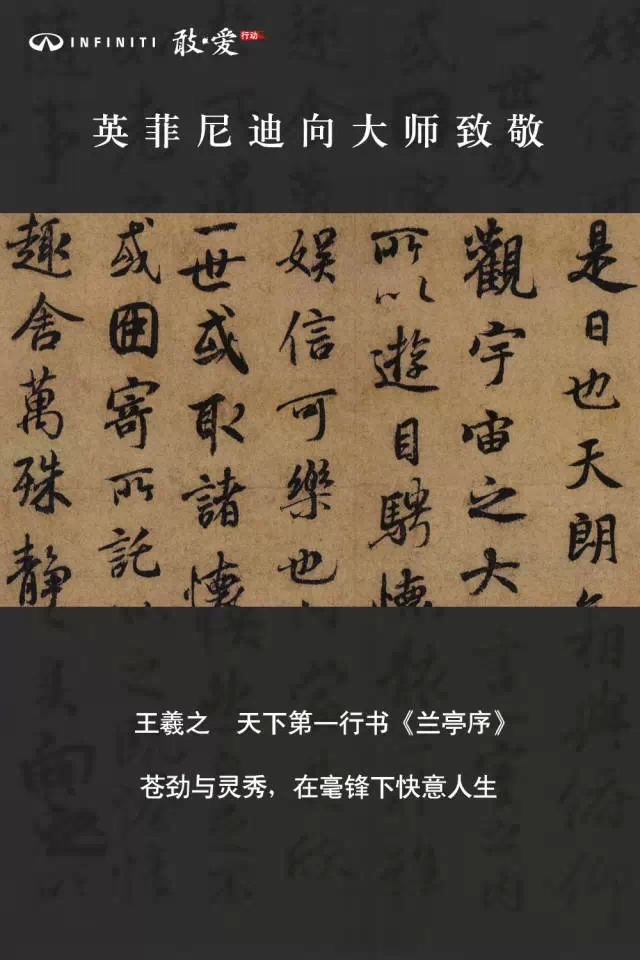 INFINITI 敢·爱 行动
英菲尼迪向大师致敬
是日也天朗
觀宇宙之大
所以遊目騁懷
娛信可樂也
一世或取諸懷
或因寄所託
趣舍萬殊靜
王羲之 天下第一行书《兰亭序》
苍劲与灵秀，在毫锋下快意人生